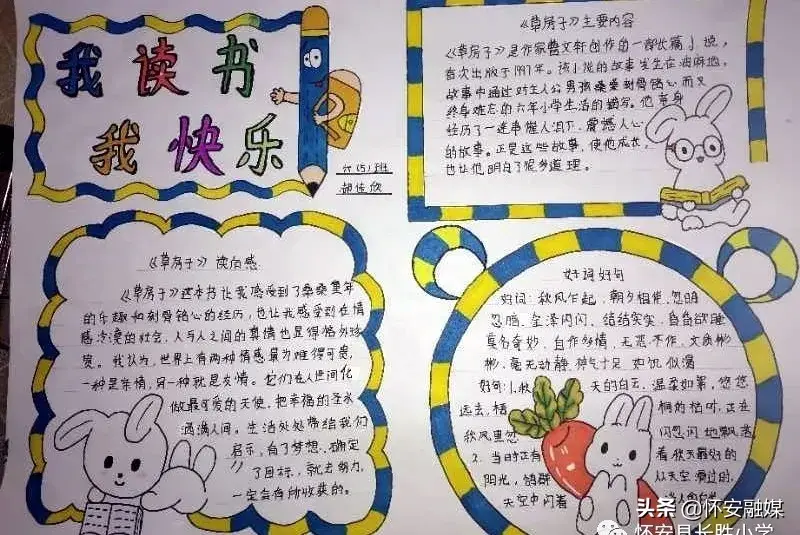 我读书
我快乐
六(5)班
《草房子》主要内容
《草房子》是作家曹文轩创作的一部长篇小说,
首次出版于1997年。该小说的故事发生在油麻地。
故事中通过对主人公男孩桑桑刻骨铭心而又
终身难忘的六年小学生活的描写。他亲身
经历了一连串催人泪下、震撼人心
的故事。正是这些故事,使他成长,
也让他明白了很多道理。
《草房子》读后感
《草房子》这本书让我感受到了桑桑童年
的乐趣和刻骨铭心的经历,也让我感受到在情
感冷漠的社会,人与人之间的真情也显得格外珍
贵。我认为,世界上有两种情感最为难得可贵,
一种是亲情,另一种就是友情。它们在人世间化
做最可爱的天使,把幸福的圣水
洒满人间。生活处处带给我们
启示,有了梦想、确定
了目标,就去努力,
一定会有所收获的。
好词好句
好词:秋风乍起、朝夕相伴、忽明
忽暗、金泽闪闪、结结实实、昏昏欲睡
莫名奇妙、自作多情、无恶不作、文质彬
彬、毫无动静、神气十足、如饥似渴
好句:1.秋 天的白云,温柔如絮,悠悠
远去,梧 桐的枯叶,正在
秋风里忽 闪忽闪地飘落
2. 当时正有 着秋天最好的
阳光,鸽群 从天空滑过时,
天空中闪着
头条 @怀安融媒
怀安县长胜小学